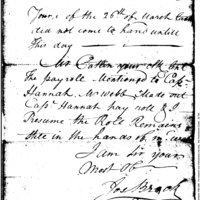 Yours of the 26th of March
did not come to hand untill
this day
Mr Patten your
the payrole Mentioned to Capt
Hannah Mr Webb Made out
Capt Hannah pay roll & I
Presume the Roll Remains
in the hands of
I am Sir your
Most Ob
Jos